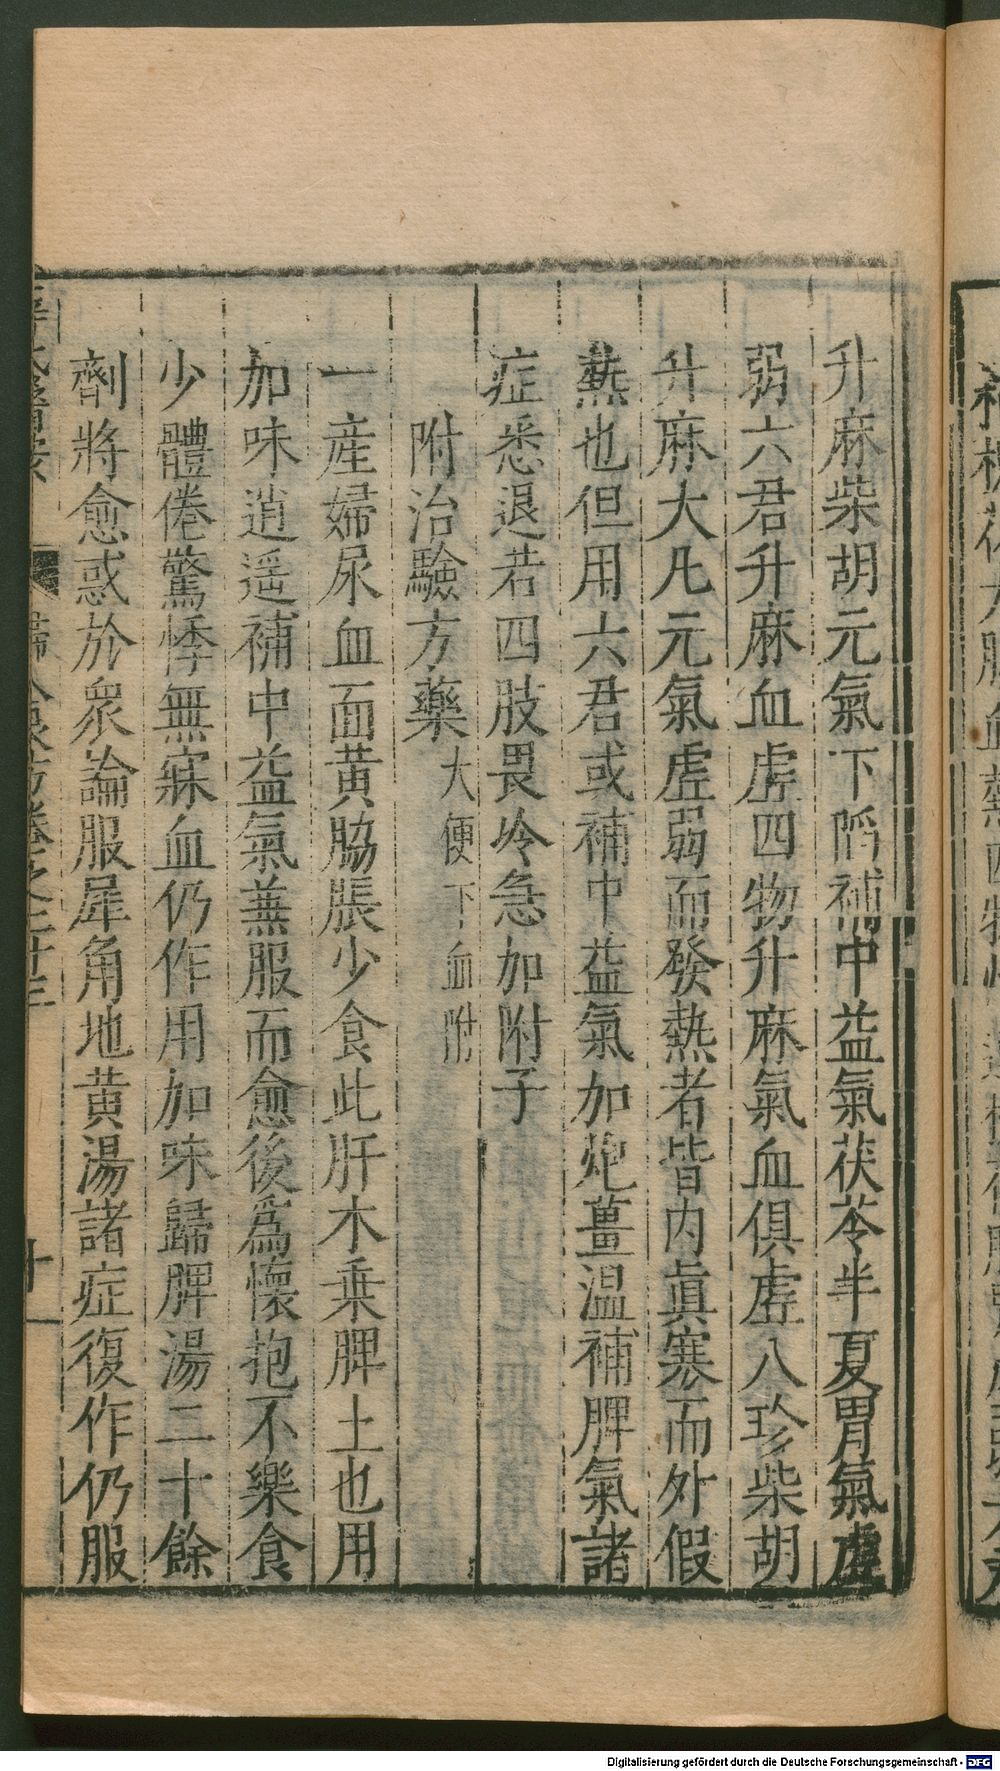 升麻柴胡元氣下陷補中益氣茯苓半夏胃氣虛
弱六君升麻血虛四物升麻氣血俱虛八珍柴胡
升麻大凡元氣虛弱而發熱者皆內眞寒而外假
熱也但用六君或補中益氣加炮薑温補脾氣諸
症悉退若四肢畏冷急加附子
附治驗方藥大便下血附
一產婦尿血面黃脇脹少食此肝木乗脾土也用
加味逍遥補中益氣蒹服而愈後爲懷抱不樂食
少體倦驚悸無寐血仍作用加味歸脾湯二十餘
劑將愈惑於衆論服犀角地黃湯諸症復作仍服
Digitalisierung gefördert durch die Deutsche Forschungsgemeinschaft - DFG